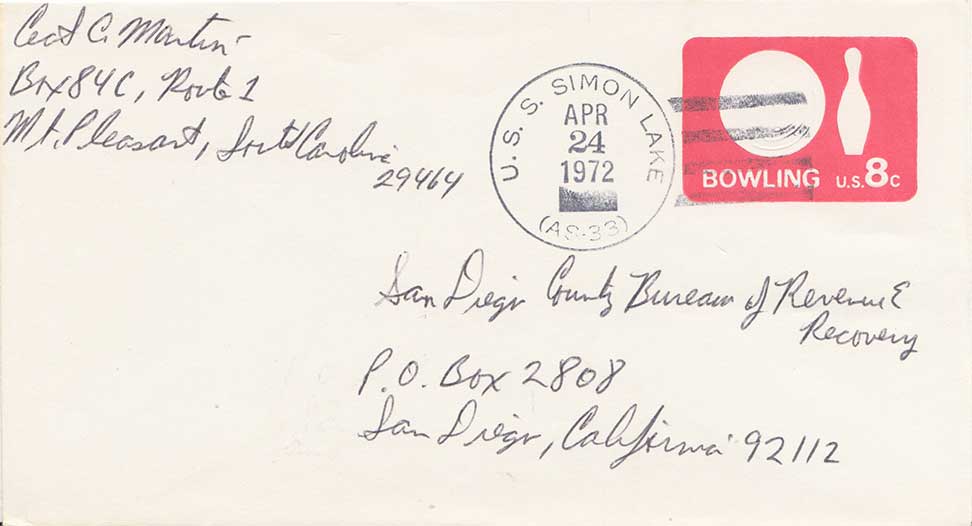 Cecil C. Martin
Box 84C, Route 1
Mt. Pleasant, South Carolina
29464
U.S.S. SIMON LAKE
APR
24
1972
(AS-33)
BOWLING U.S. 8c
San Diego County Bureau of Revenue
Recovery
P.O. Box 2808
San Diego, California 92112